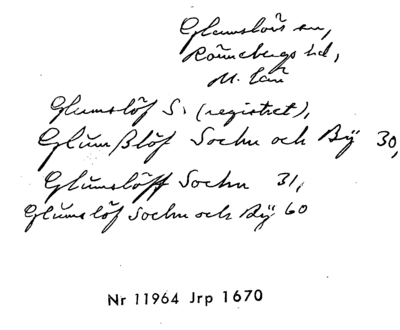 Glumslövs sn,
Rönnebergs hd,
M. län
Glumslöf S. (registret),
Glŭmßlöf Sochn och Bÿ 30,
Glŭmslöff Sochn 31,
Glŭmslöf Sochn och Bÿ 60
Nr 11964 Jrp 1670